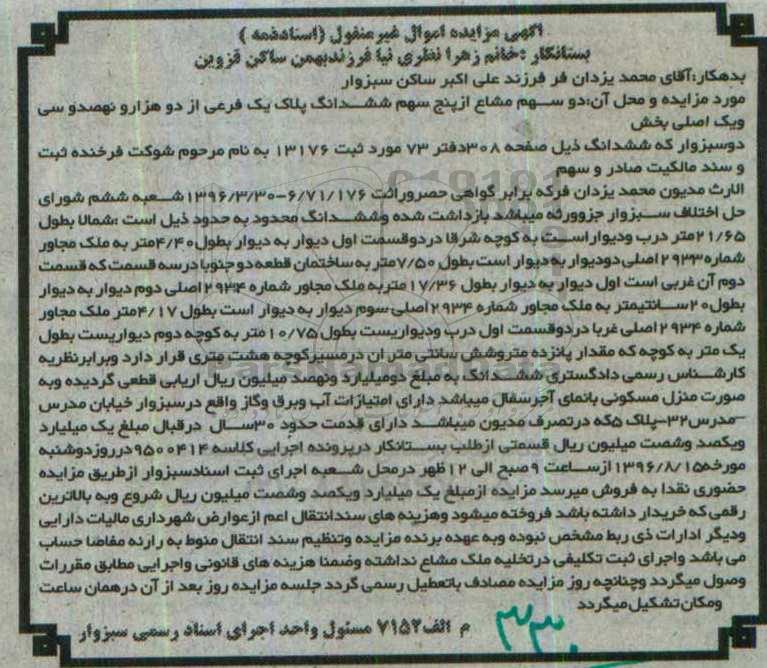 آگهی مزایده اموال غیرمنقول (اسنادذمه )
بستانکار :خانم زهرا نظری نیا فرزندبهمن ساکن قزوین
بدهکار:آقای محمد یزدان فر فرزند علی اکبر ساکن سبزوار
مورد مزایده و محل آن:دو سهم مشاع ازپنج سهم ششدانگ پلاک یک فرعی از دو هزارو نهصدو سی
ویک اصلی بخش
دوسبزوار که ششدانگ ذیل صفحه ۳۰۸دفتر ۷۳ مورد ثبت ۱۳۱۷۶ به نام مرحوم شوکت فرخنده ثبت
و سند مالکیت صادر و سهم
الارث مدیون محمد یزدان فرکه برابر گواهی حصروراثت ۶/۷۱/۱۷۶-۱۳۹۶/۳/۳۰شعبه ششم شورای
حل اختلاف سبزوار جزوورثه میباشد بازداشت شده وششدانگ محدود به حدود ذیل است :شمالا بطول
۲۱/۶۵متر درب ودیواراست به کوچه شرقا دردوقسمت اول دیوار به دیوار بطول۴/۴۰متر به ملک مجاور
شماره۲۹۳۳اصلی دودیوار به دیوار است بطول ۷/۵۰متر به ساختمان قطعه دو جنوبا درسه قسمت که قسمت
دوم آن غربی است اول دیوار به دیوار بطول ۱۷/۳۶متربه ملک مجاور شماره ۲۹۳۴اصلی دوم دیوار به دیوار
بطول۲۰سانتیمتر به ملک مجاور شماره ۲۹۳۴اصلی سوم دیوار به دیوار است بطول ۴/۱۷متر ملک مجاور
شماره ۲۹۳۴اصلی غربا دردوقسمت اول درب ودیواریست بطول ۱۰/۷۵متر به کوچه دوم دیواریست بطول
یک متر به کوچه که مقدار پانزده متروشش سانتی متر آن درمسیرکوچه هشت متری قرار دارد وبرابرنظریه
کارشناس رسمی دادگستری ششدانگ به مبلغ دومیلیارد ونهصد میلیون ریال اریابی قطعی گردیده وبه
صورت منزل مسکونی بانمای آجرسفال میباشد دارای امتیازات آب وبرق وگاز واقع درسبزوار خیابان مدرس
–مدرس۳۲–پلاک ۵که درتصرف مدیون میباشد دارای قدمت حدود ۳۰سال درقبال مبلغ یک میلیارد
ویکصد وشصت میلیون ریال قسمتی ازطلب بستانکار درپرونده اجرایی کلاسه ۹۵۰۰۴۱۴درروزدوشنبه
مورخه۱۳۹۶/۸/۱۵ازساعت ۹صبح الی ۱۲ظهر درمحل شعبه اجرای ثبت اسنادسبزوار ازطریق مزایده
حضوری نقدا به فروش میرسد مزایده ازمبلغ یک میلیارد ویکصد وشصت میلیون ریال شروع وبه بالاترین
رقمی که خریدار داشته باشد فروخته میشود وهزینه های سندانتقال اعم ازعوارض شهرداری مالیات دارایی
ودیگر ادارات ذی ربط مشخص نبوده وبه عهده برنده مزایده وتنظیم سند انتقال منوط به رارئه مفاصا حساب
می باشد واجرای ثبت تکلیفی درتخلیه ملک مشاع نداشته وضمنا هزینه های قانونی واجرایی مطابق مقررات
وصول میگردد وچنانچه روز مزایده مصادف باتعطیل رسمی گردد جلسه مزایده روز بعد از آن درهمان ساعت
ومکان تشکیل میگردد
م الف ۷۱۵۲ مسئول واحد اجرای اسناد رسمی سبزوار
۳۳۰
ParsNamadData